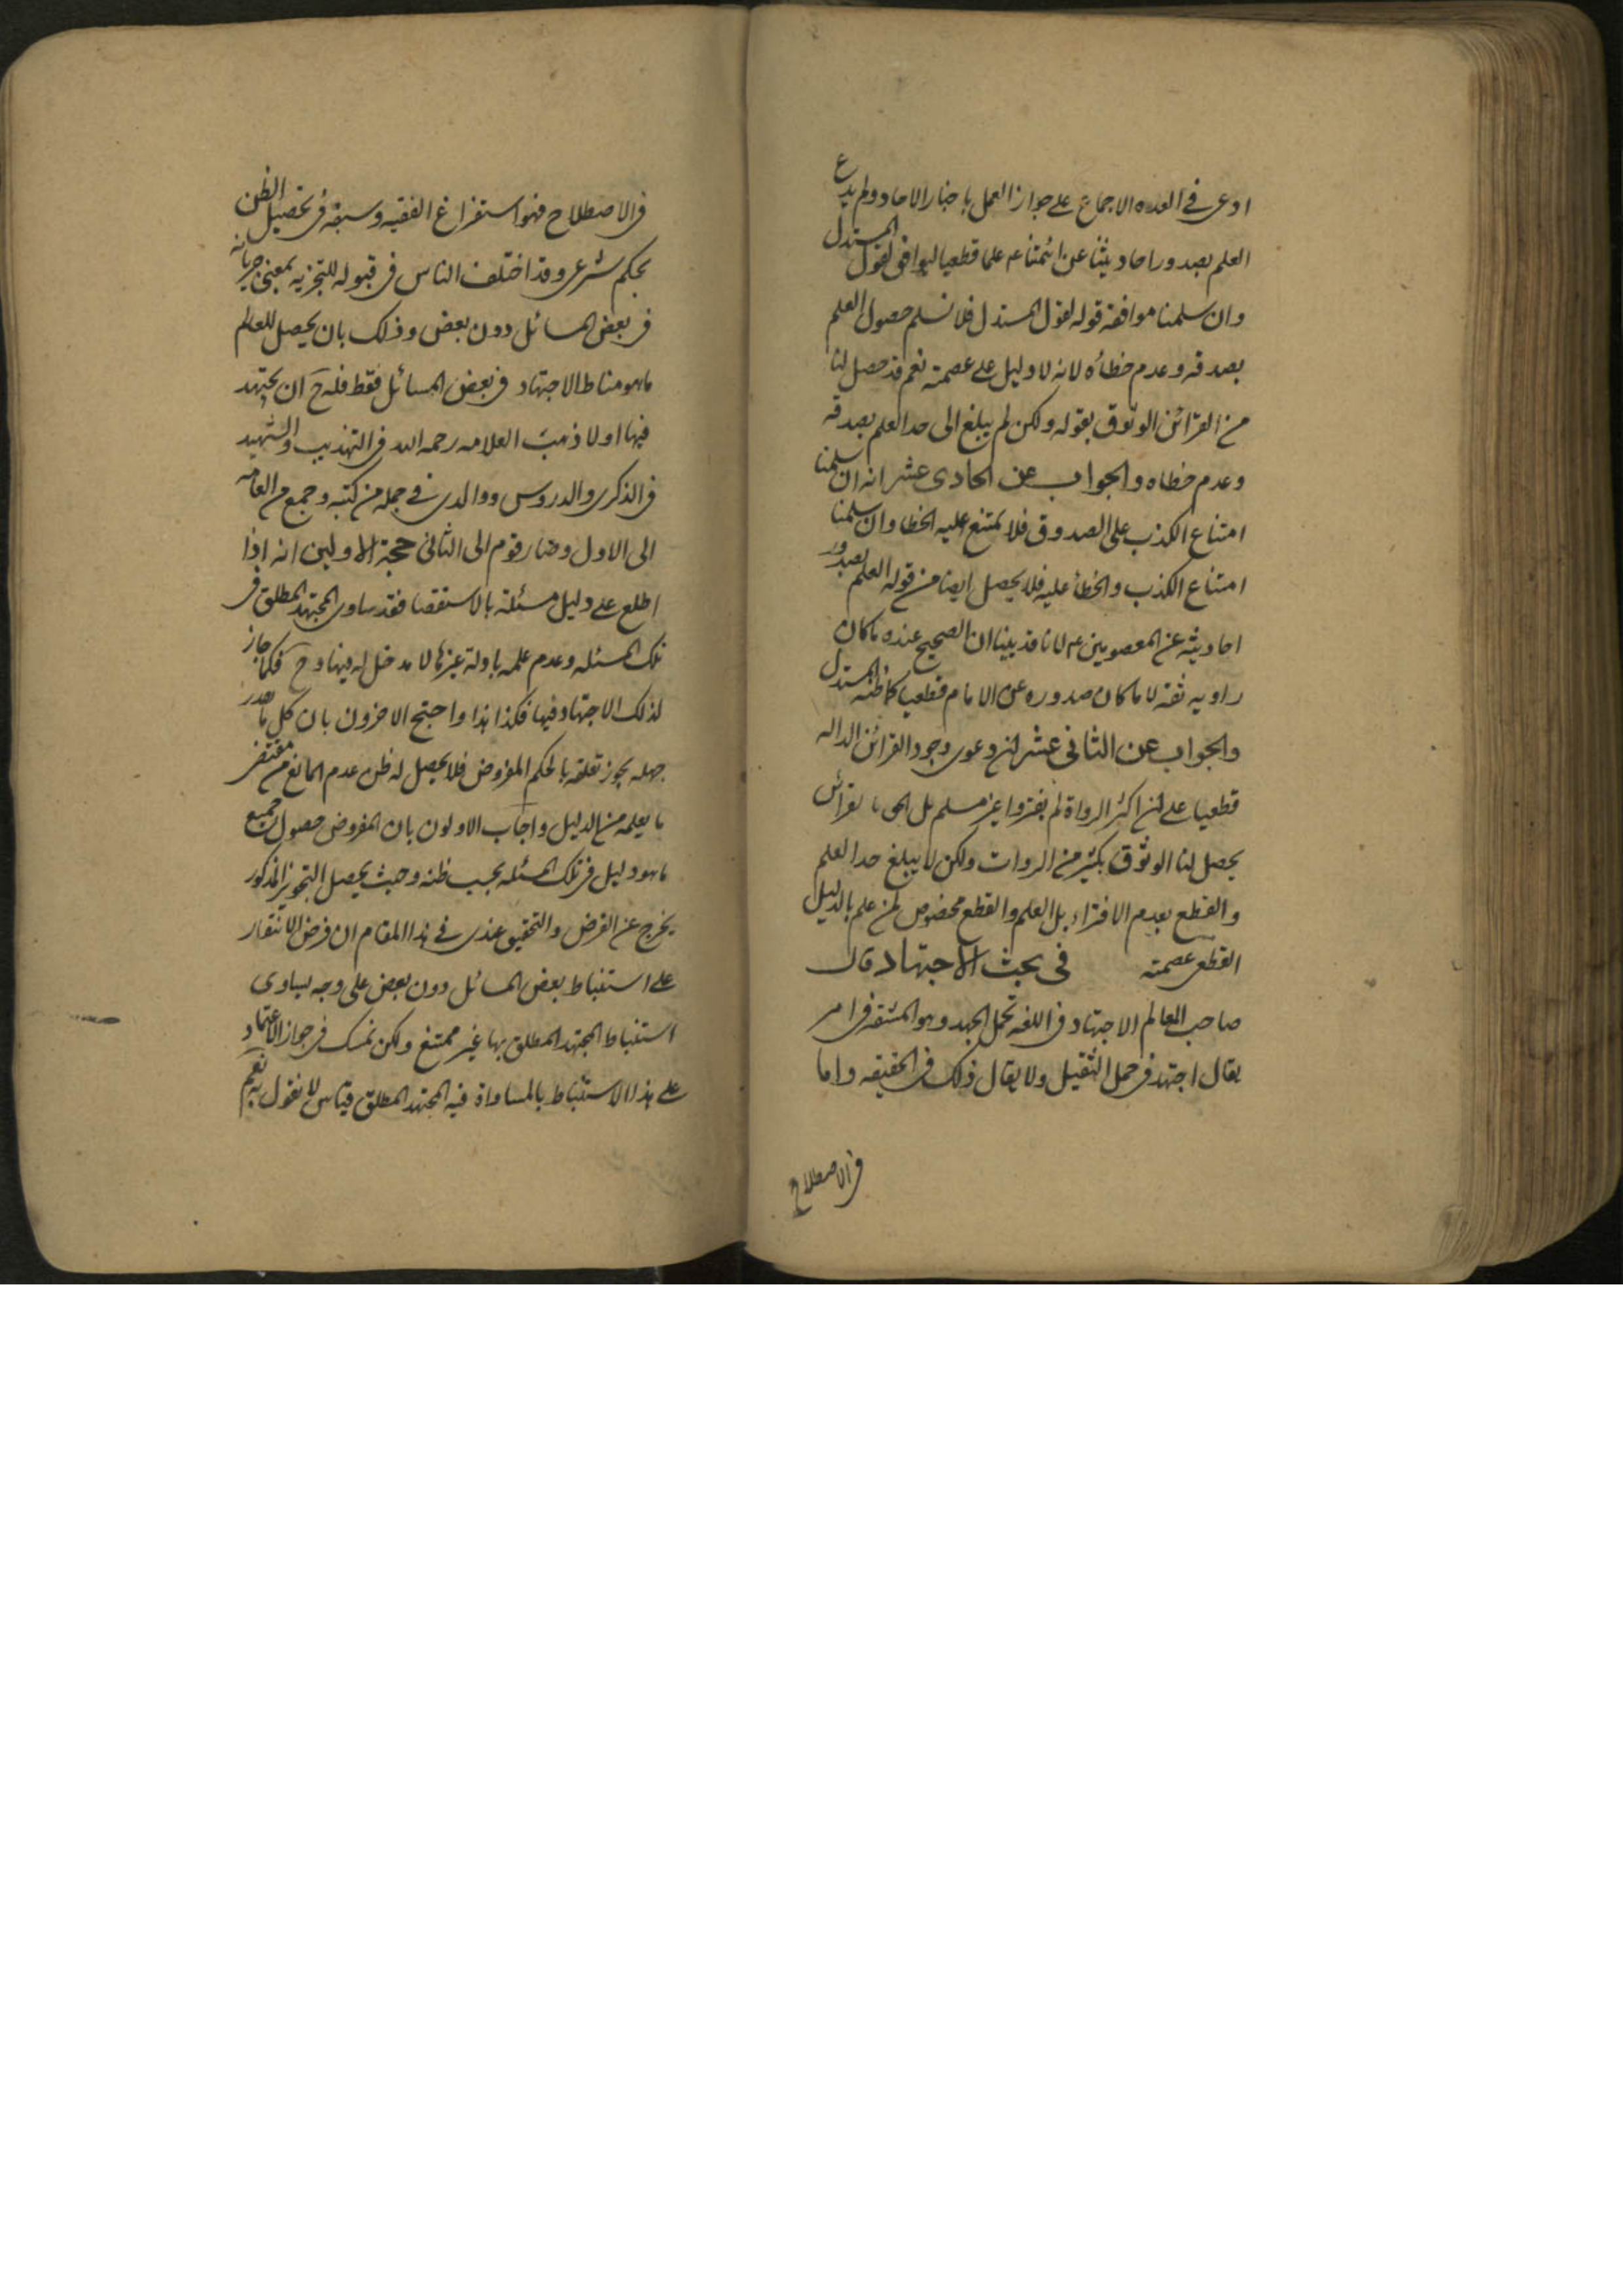 ادعى في العده الاجماع على جواز العمل باخبار الاحاد ولم يدع
العلم بصدور احاديثنا عن ائمتنا ع م علما قطعيا ليوافق لقول المستدل
وان سلمنا موافقة قوله لقول المستدل فلا نسلم حصول العلم
بصدقه وعدم خطائه لانه لا دليل على عصمته نعم قد حصل لنا
من القرائن الوثوق بقوله ولكن لم يبلغ الى حد العلم بصدقه
وعدم خطاه والجواب عن الحادى عشر انه ان سلمنا
امتناع الكذب على الصدوق فلا يمتنع عليه الخطا وان سلمنا
امتناع الكذب والخطأ عليه فلا يحصل ايضا من قوله العلم بصدور
احاديثه عن المعصومين ع م لانا قد بينا ان الصحيح عنده ما كان
راويه ثقة لا ما كان صدوره عن الامام قطعيا كما ظنه المستدل
والجواب عن الثانى عشر ان دعوى وجود القرائن الداله
قطعيا على ان اكثر الرواة لم يفتروا غير مسلم بل الحق بالقرائن
يحصل لنا الوثوق بكثير من الروات ولكن لا يبلغ حد العلم
والقطع بعدم الافتراء بل العلم والقطع مخصوص لمن علم بالدليل
القطعى عصمته في بحث الاجتهاد قال
صاحب المعالم الاجتهاد فى اللغه تحمل الجهد وهو المشقه فى امر
يقال اجتهد فى حمل الثقيل ولا يقال ذلك فى الحقيقه واما
فى الاصطلاح
فى الاصطلاح فهو استفراغ الفقيه وسعه فى تحصيل الظن
بحكم شرعى وقد اختلف الناس فى قبوله للتجزيه بمعنى جريانه
فى بعض المسائل دون بعض وذلك بان يحصل للعالم
ما هو مناط الاجتهاد فى بعض المسائل فقط فله ح ان يجتهد
فيها اولا ذهب العلامه رحمه الله فى التهذيب والشهيد
فى الذكرى والدروس ووالدى في جمله من كتبه وجمع من العامه
الى الاول وصار قوم الى الثانى حجة الاولين انه اذا
اطلع على دليل مسئلة بالاستقصا فقد ساوى المجتهد المطلق فى
تلك المسئله وعدم علمه بادلة غيرها لا مدخل له فيها وح فكما جاز
لذلك الاجتهاد فيها فكذا هذا واحتج الاخرون بان كل ما يقدر
جهله يجوز تعلقه بالحكم المفروض فلا يحصل له ظن عدم المانع من مقتضى
ما يعلمه من الدليل واجاب الاولون بان المفروض حصول جميع
ما هو دليل فى تلك المسئله بحسب ظنه وحيث يحصل التجويز المذكور
يخرج عن الفرض والتحقيق عندى في هذا المقام ان فرض الاقتدار
على استنباط بعض المسائل دون بعض على وجه يساوى
استنباط المجتهد المطلق بها غير ممتنع ولكن تمسك فى جواز الاعتماد
على هذا الاستنباط بالمساواة فيه المجتهد المطلق قياس لا نقول به نعم